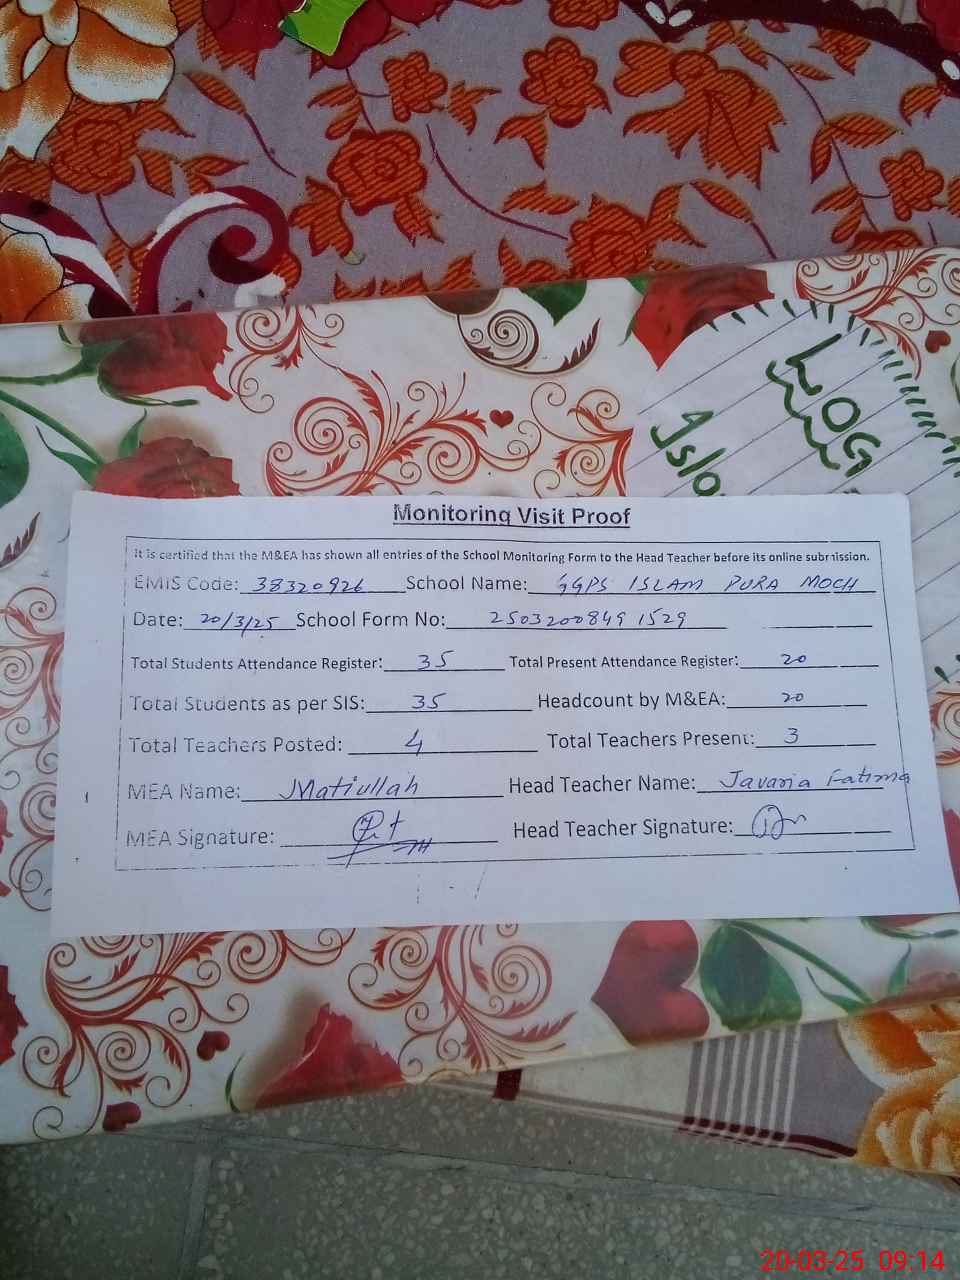 LOG
Islo
Monitoring Visit Proof
It is certified that the M&EA has shown all entries of the School Monitoring Form to the Head Teacher before its online submission.
EMIS Code: 38320926 School Name: GGPS ISLAM PURA MOCH
Date: 20/3/25 School Form No: 2503200849 1529
Total Students Attendance Register: 35 Total Present Attendance Register: 20
Total Students as per SIS: 35 Headcount by M&EA: 20
Total Teachers Posted: 4 Total Teachers Present: 3
MEA Name: Matiullah Head Teacher Name: Javaria Fatima
MEA Signature: Head Teacher Signature:
20-03-25 09:14